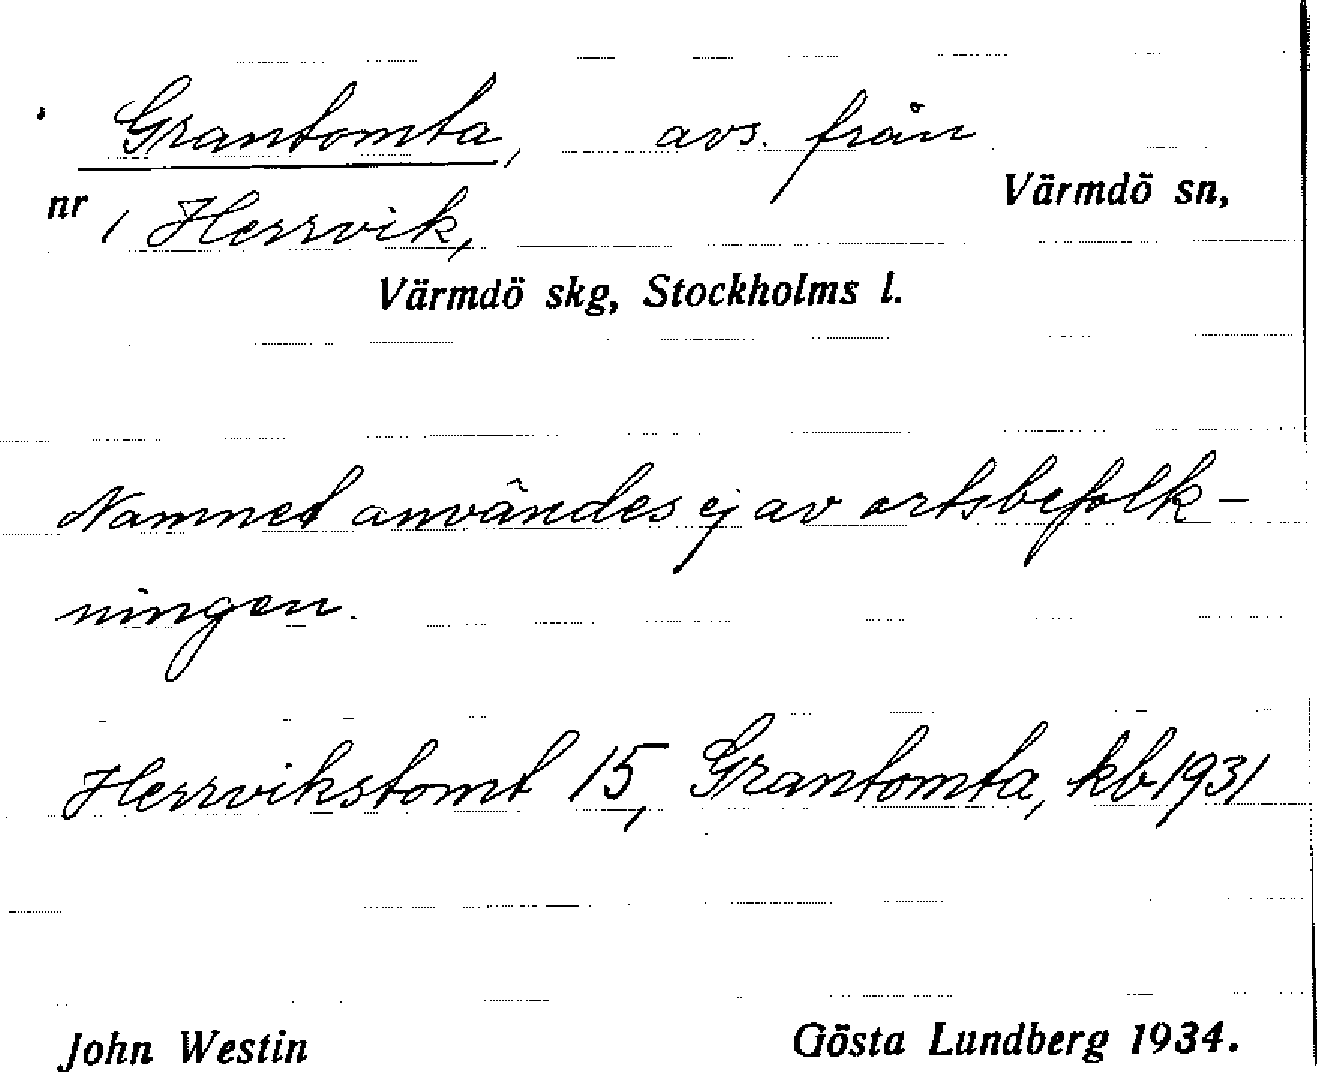 Grantomta, avs. från
nr 1 Herrvik, Värmdö sn,
Värmdö skg, Stockholms l.
Namnet användes ej av ortsbefolk-
ningen.
Herrvikstomt 15, Grantomta, kb 1931
John Westin Gösta Lundberg 1934.